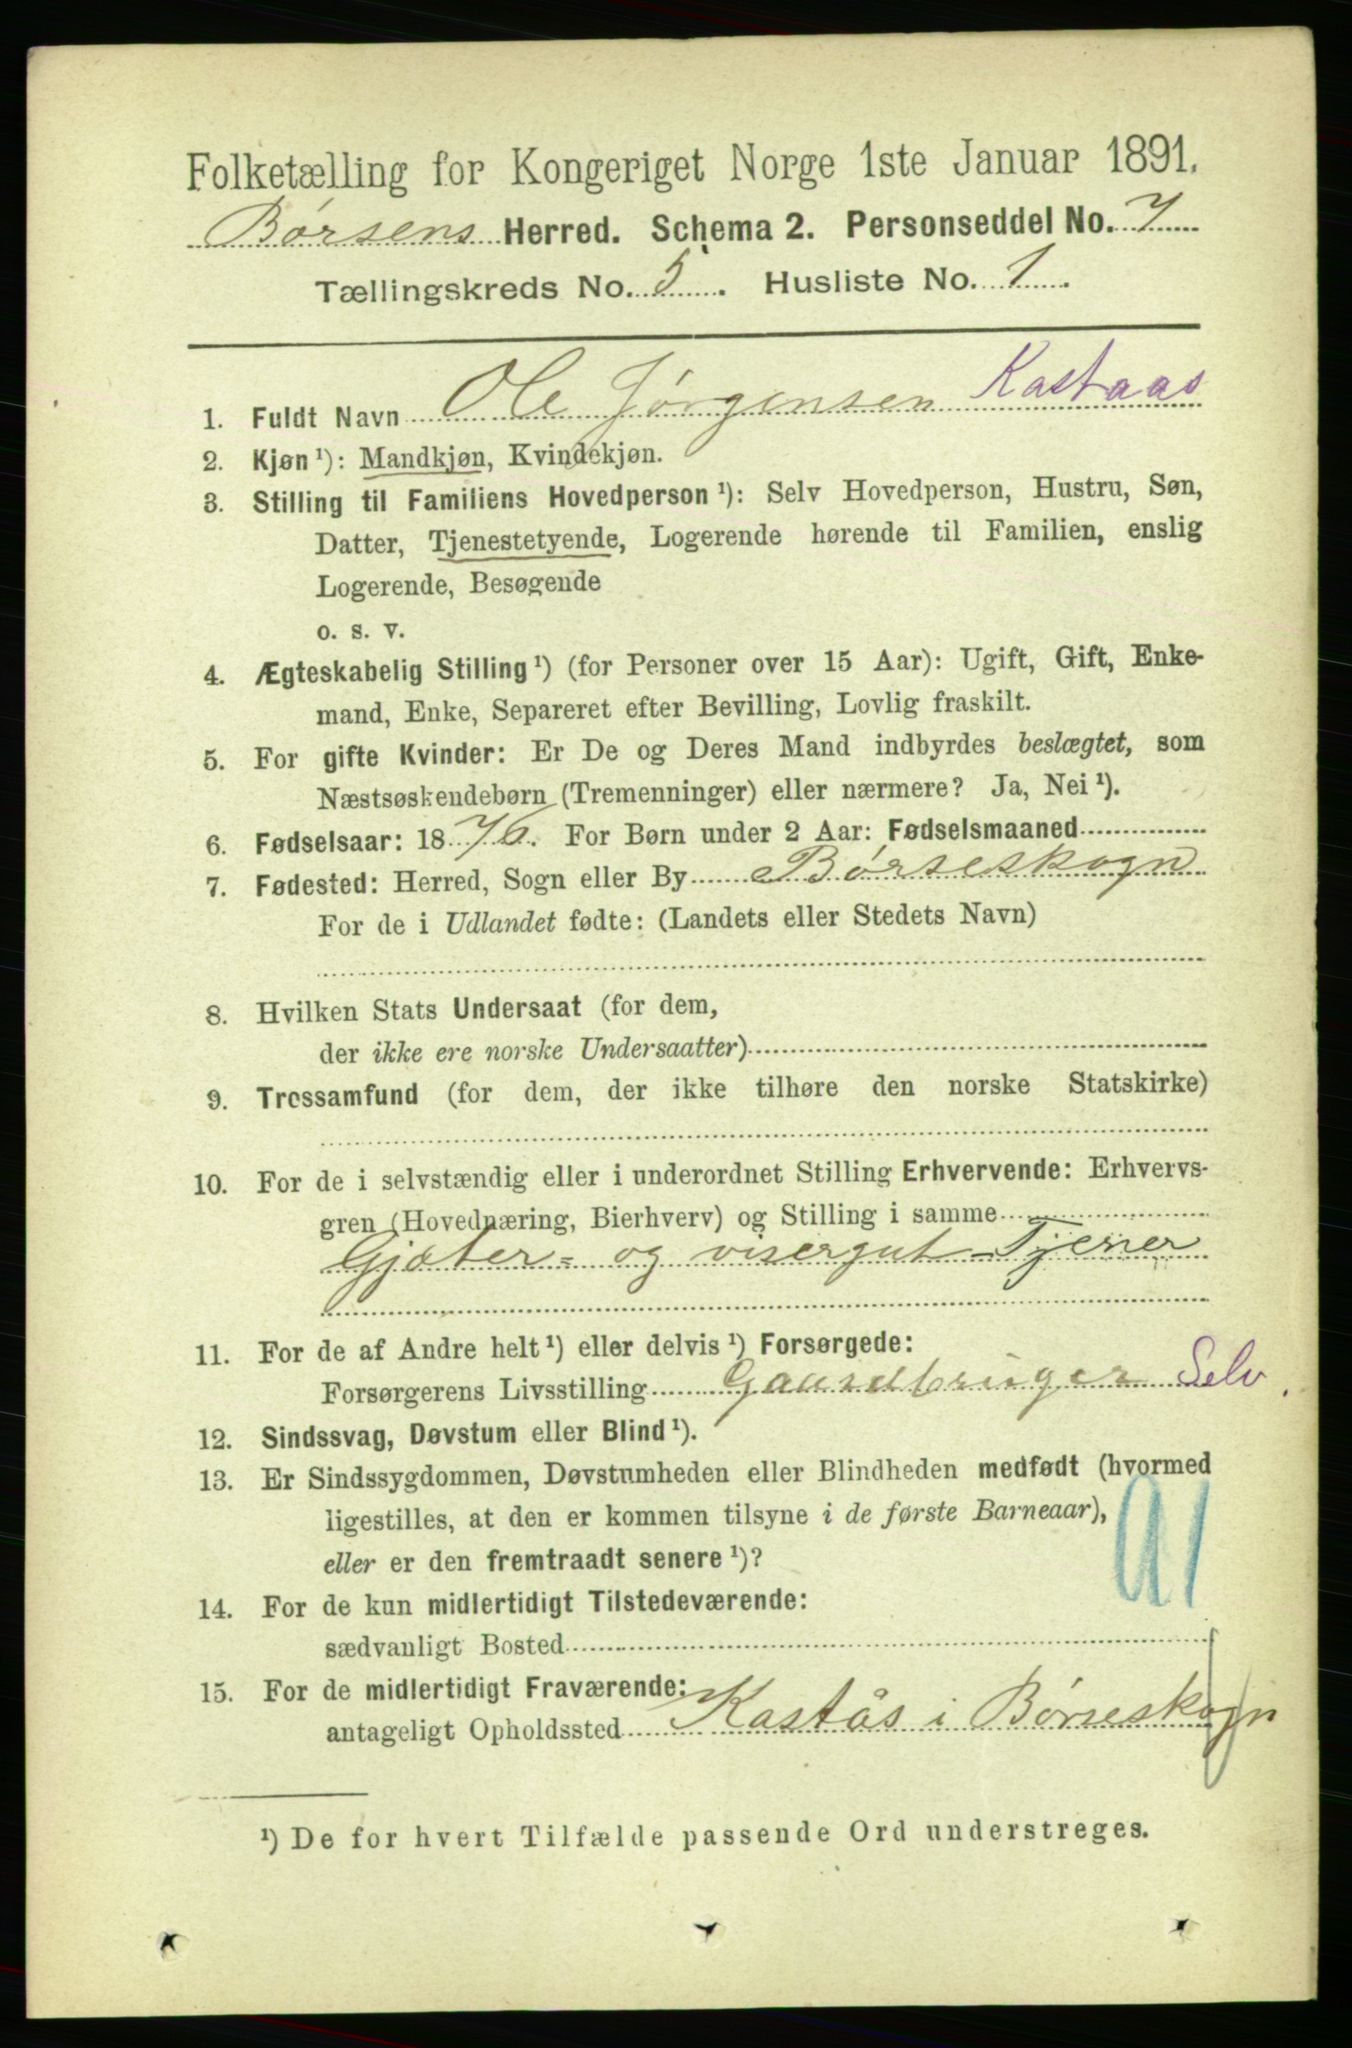 Folketælling for Kongeriget Norge 1ste Januar 1891.
Børsens Herred. Schema 2. Personseddel No. 7
Tællingskreds No. 5. Husliste No. 1.
1. Fuldt Navn Ole Jørgensen Kastaas
2. Kjøn¹): Mandkjøn, Kvindekjøn.
3. Stilling til Familiens Hovedperson¹): Selv Hovedperson, Hustru, Søn,
Datter, Tjenestetyende, Logerende hørende til Familien, enslig
Logerende, Besøgende
o. s. v.
4. Ægteskabelig Stilling¹) (for Personer over 15 Aar): Ugift, Gift, Enke-
mand, Enke, Separeret efter Bevilling, Lovlig fraskilt.
5. For gifte Kvinder: Er De og Deres Mand indbyrdes beslægtet, som
Næstsøskendebørn (Tremenninger) eller nærmere? Ja, Nei¹).
6. Fødselsaar: 1876. For Børn under 2 Aar: Fødselsmaaned
7. Fødested: Herred, Sogn eller By Børseskogn
For de i Udlandet fødte: (Landets eller Stedets Navn)
8. Hvilken Stats Undersaat (for dem,
der ikke ere norske Undersaatter)
9. Trossamfund (for dem, der ikke tilhøre den norske Statskirke)
10. For de i selvstændig eller i underordnet Stilling Erhvervende: Erhvervs-
gren (Hovednæring, Bierhverv) og Stilling i samme
Gjæter- og visergut Tjener
11. For de af Andre helt¹) eller delvis¹) Forsørgede:
Forsørgerens Livsstilling Gaardbruger Selv.
12. Sindssvag, Døvstum eller Blind¹).
13. Er Sindssygdommen, Døvstumheden eller Blindheden medfødt (hvormed
ligestilles, at den er kommen tilsyne i de første Barneaar),
eller er den fremtraadt senere¹)?
14. For de kun midlertidigt Tilstedeværende:
sædvanligt Bosted
15. For de midlertidigt Fraværende:
antageligt Opholdssted Kastås i Børseskogn
¹) De for hvert Tilfælde passende Ord understreges.